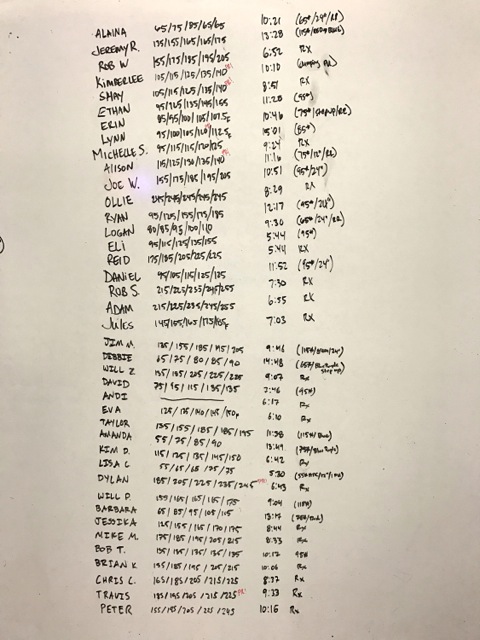 ALAINA 65/75/85/65/65 10:21 (65#/24"/RR)
JEREMY R. 135/155/165/165/175 13:28
ROB W 155/175/185/195/205 6:52 RX
KIMBERLEE 105/115/125/135/140 PR! 10:10
SHAY 105/115/125/135/140 PR! 8:51 RX
ETHAN 95/125/135/145/155 11:28 (95#)
ERIN 85/95/100/105/107.5F 10:46 (75#/step up/RR)
LYNN 95/100/105/110/112.5F 15:01 (85#)
MICHELLE S. 95/115/115/120/125 9:24 RX
Alison 115/125/130/135/140 PR! 11:16 (75#/12"/RR)
JOE W. 155/175/185/195/205 10:51 (95#/24")
OLLIE 245/245/245/245/245 8:29 RX
RYAN 95/125/155/175/185 12:17 (95#/24")
LOGAN 80/85/95/100/110 9:30 (65#/24"/RR)
ELI 95/115/125/135/155 5:44 (95#)
REID 175/185/205/225/225 5:44 RX
DANIEL 95/105/115/125/125 11:52 (95#/24")
ROB S. 215/225/235/245/255 7:30 RX
ADAM 215/225/235/245/255 6:55 RX
Jules 145/155/165/175/185F 7:03 RX
JIM M. 135/155/185/195/205 9:46
DEBBIE 65/75/80/85/90 14:48
WILL Z. 135/185/205/225/235 9:07 Rx
DAVID 75/95/115/135/135 7:46 (95#)
ANDI 6:17 Rx
EVA 125/135/140/145/150F 6:10 Rx
TAYLOR 135/155/185/185/195
AMANDA 55/75/85/90 11:38
KIM D. 115/125/135/145/150 13:49
LISA C 55/65/65/75/75 6:42 Rx
DYLAN 185/205/225/235/245 PR! 5:30
WILL P. 6:43 Rx
BARBARA 65/85/95/105/115 9:04
JESSIKA 125/155/165/170/175 13:17
MIKE M. 175/185/195/205/215 8:44 Rx
BOB T. 135/135/135/135/135 8:33 Rx
BRIAN K 155/185/195/205/215 10:12 95#
CHRIS C. 165/185/205/215/225 10:06 Rx
TRAVIS 185/195/205/215/225 PR! 8:37 Rx
PETER 155/185/205/225/245 9:23 Rx
10:16 Rx